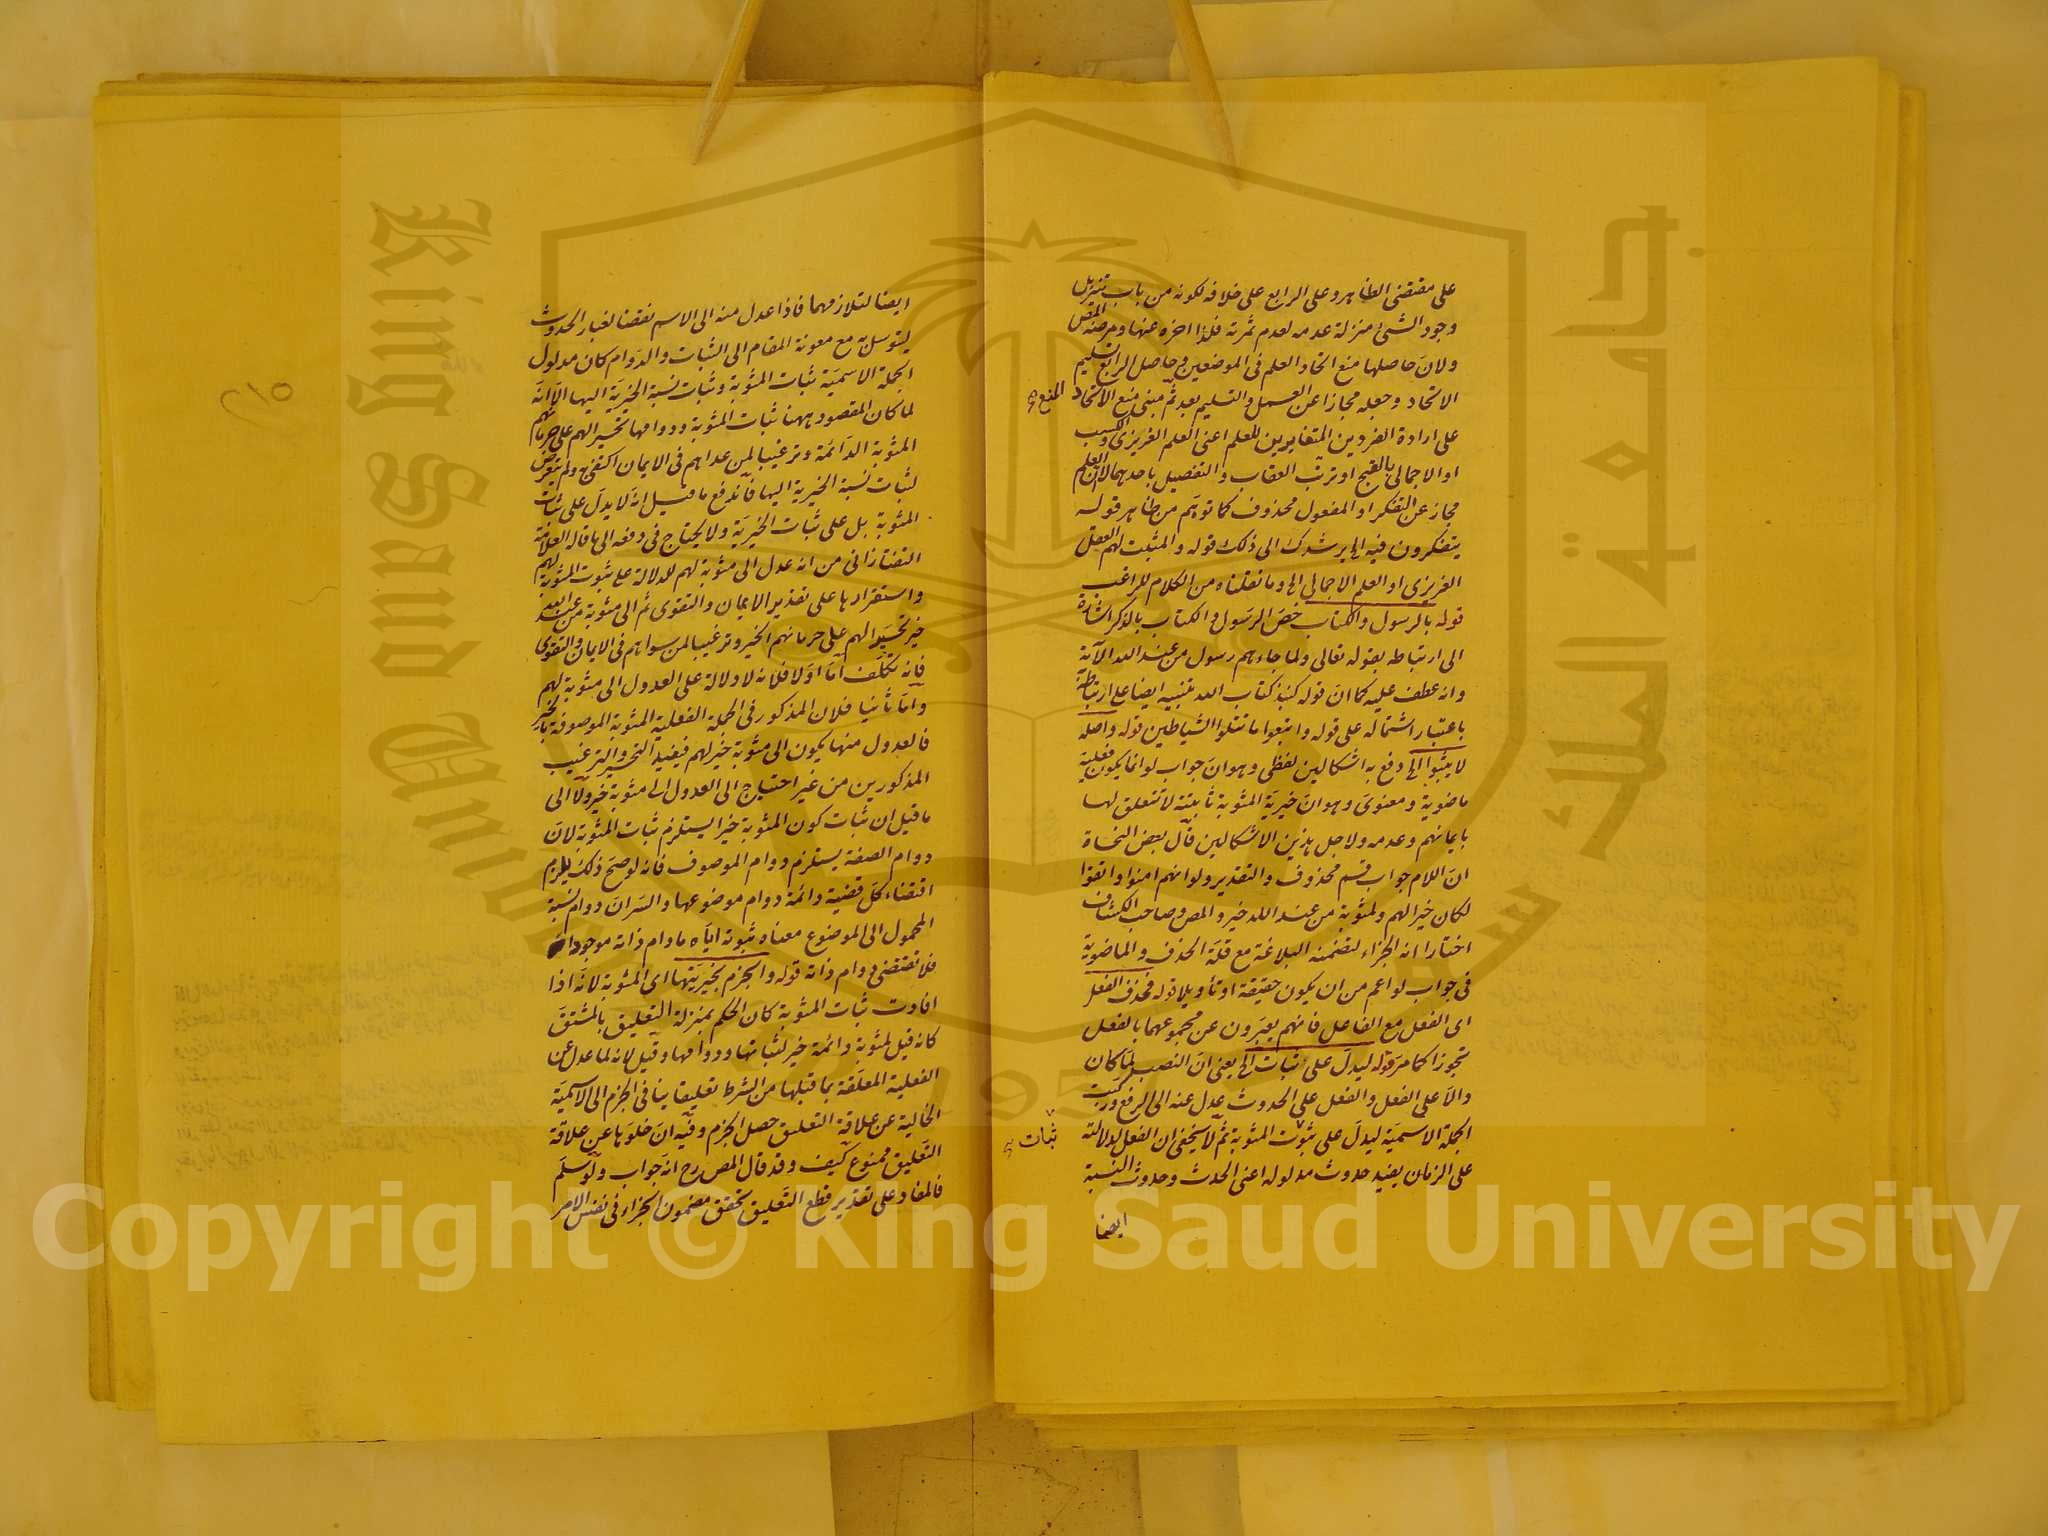 على مقتضى الظاهر وعلى الرابع على خلافه لكونه من باب تنزيل
وجود الشئ منزلة عدمه لعدم ثمرته فلذا اخره عنها ومرضه المص
ولان حاصلها منع اتحاد العلم فى الموضعين وحاصل الرابع تسليم
الاتحاد وجعله مجازا عن العمل والتسليم بعد ثم مبنى منع الاتحاد
المنع صح
على ارادة الفردين المتغايرين للعلم اعنى العلم الغريزى والكسب
او الاجمالى بالقبح او ترتب العقاب والتفصيل باحدهما لان العلم
مجاز عن التفكر او المفعول محذوف كما توهم من ظاهر قوله
يتفكرون فيه الخ يرشدك الى ذلك قوله والمثبت لهم العقل
الغريزى او العلم الاجمالى الخ وما نقلناه من الكلام للراغب
قوله بالرسول والكتاب خص الرسول والكتاب بالذكر اشارة
الى ارتباطه بقوله تعالى ولما جاءهم رسول من عند الله الآية
وانه عطف عليه كما ان قوله كنبذ كتاب الله تنبيه ايضا على ارتباطه
باعتبار اشتماله على قوله واتبعوا ما تتلوا الشياطين قوله واصله
لاثيبوا الخ دفع به اشكالين لفظى وهو ان جواب لو انما يكون فعلية
ماضوية ومعنوى وهو ان خيرية المثوبة ثابتة لا تتعلق لها
بايمانهم وعدمه ولاجل هذين الاشكالين قال بعض النحاة
ان اللام جواب قسم محذوف والتقدير ولو انهم امنوا واتقوا
لكان خيرا لهم ولمثوبة من عند الله خير والمص وصاحب الكشاف
اختارا انه الجزاء لتضمنه البلاغة مع قلة الحذف والماضوية
فى جواب لو اعم من ان يكون حقيقة او تأويلا قوله فحذف الفعل
اى الفعل مع الفاعل فانهم يعبرون عن مجموعهما بالفعل
تجوزا كما مر قوله ليدل على ثبات الخ يعنى ان النصب لما كان
دالا على الفعل والفعل على الحدوث عدل عنه الى الرفع وركبت
الجملة الاسمية ليدل على ثبوت المثوبة ثم لا يخفى ان الفعل لدلالته
ثبات صح
على الزمان يفيد حدوث مدلوله اعنى الحدث وحدوث النسبة
ايضا
٢١٥
ايضا لتلازمهما فاذا عدل منه الى الاسم نفضنا لغبار الحدوث
ليتوسل به مع معونة المقام الى الثبات والدوام كان مدلول
الجملة الاسمية ثبات المثوبة وثبات نسبة الخيرية اليها الا انه
لما كان المقصود ههنا ثبات المثوبة ودوامها تحسيرا لهم على حرمانهم
المثوبة الدائمة وترغيبا لمن عداهم فى الايمان اكتفى به ولم يتعرض
لثبات نسبة الخيرية اليها فاندفع ما قيل انه لا يدل على ثبات
المثوبة بل على ثبات الخيرية ولا يحتاج فى دفعه الى ما قاله العلامة
التفتازانى من انه عدل الى مثوبة لهم للدلالة على ثبوت المثوبة لهم
واستقرارها على تقدير الايمان والتقوى ثم الى مثوبة من عند الله
خير تحسيرا لهم على حرمانهم الخير وترغيبا لمن سواهم فى الايمان والتقوى
فانه تكلف اما اولا فلانه لا دلالة على العدول الى مثوبة لهم
واما ثانيا فلان المذكور فى الجملة الفعلية المثوبة الموصوفة بالخير
فالعدول منها يكون الى مثوبة خير لهم فيفيد التحسير والترغيب
المذكورين من غير احتياج الى العدول الى مثوبة خير ولا الى
ما قيل ان ثبات كون المثوبة خيرا يستلزم ثبات المثوبة لان
دوام الصفة يستلزم دوام الموصوف فانه لو صح ذلك يلزم
اقتضاء كل قضية دائمة دوام موضوعها والسر ان دوام نسبة
المحمول الى الموضوع معناه ثبوته اياه ما دام ذاته موجودا
فلا تقتضى دوام ذاته قوله والجزم بخيريتها اى المثوبة لانه اذا
افادت ثبات المثوبة كان الحكم بمنزلة التعليق بالمشتق
كانه قيل لمثوبة دائمة خير لثباتها ودوامها وقيل لانه لما عدل عن
الفعلية المعلقة بما قبلها من الشرط تعليقا ينافى الجزم الى الاسمية
الخالية عن علاقة التعليق حصل الجزم وفيه ان خلوها عن علاقة
التعليق ممنوع كيف وقد قال المص رح انه جواب ولو سلم
فالمفاد على تقدير قطع التعليق تحقق مضمون الجزاء فى نفس الامر
King Saud University
جامعة الملك سعود
1957
Copyright © King Saud University